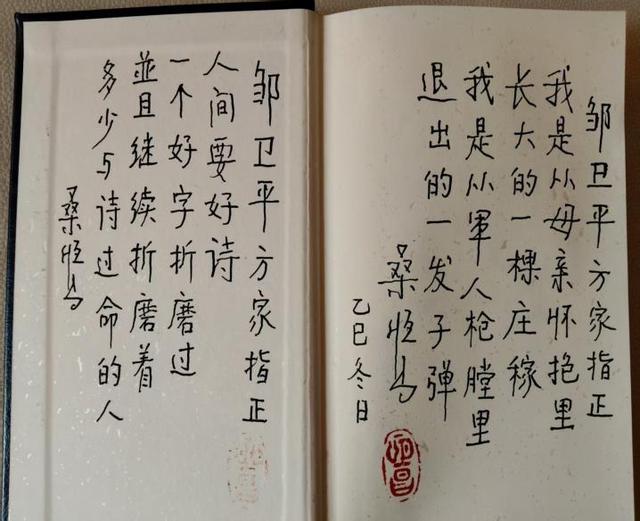 邹卫平方家指正
我是从母亲怀抱里
长大的一棵庄稼
我是从軍人枪膛里
退出的一发子弹
桑恒昌
乙巳冬日
恒昌
邹卫平方家指正
人间要好诗
一个好字折磨过
並且继续折磨着
多少与诗过命的人
桑恒昌